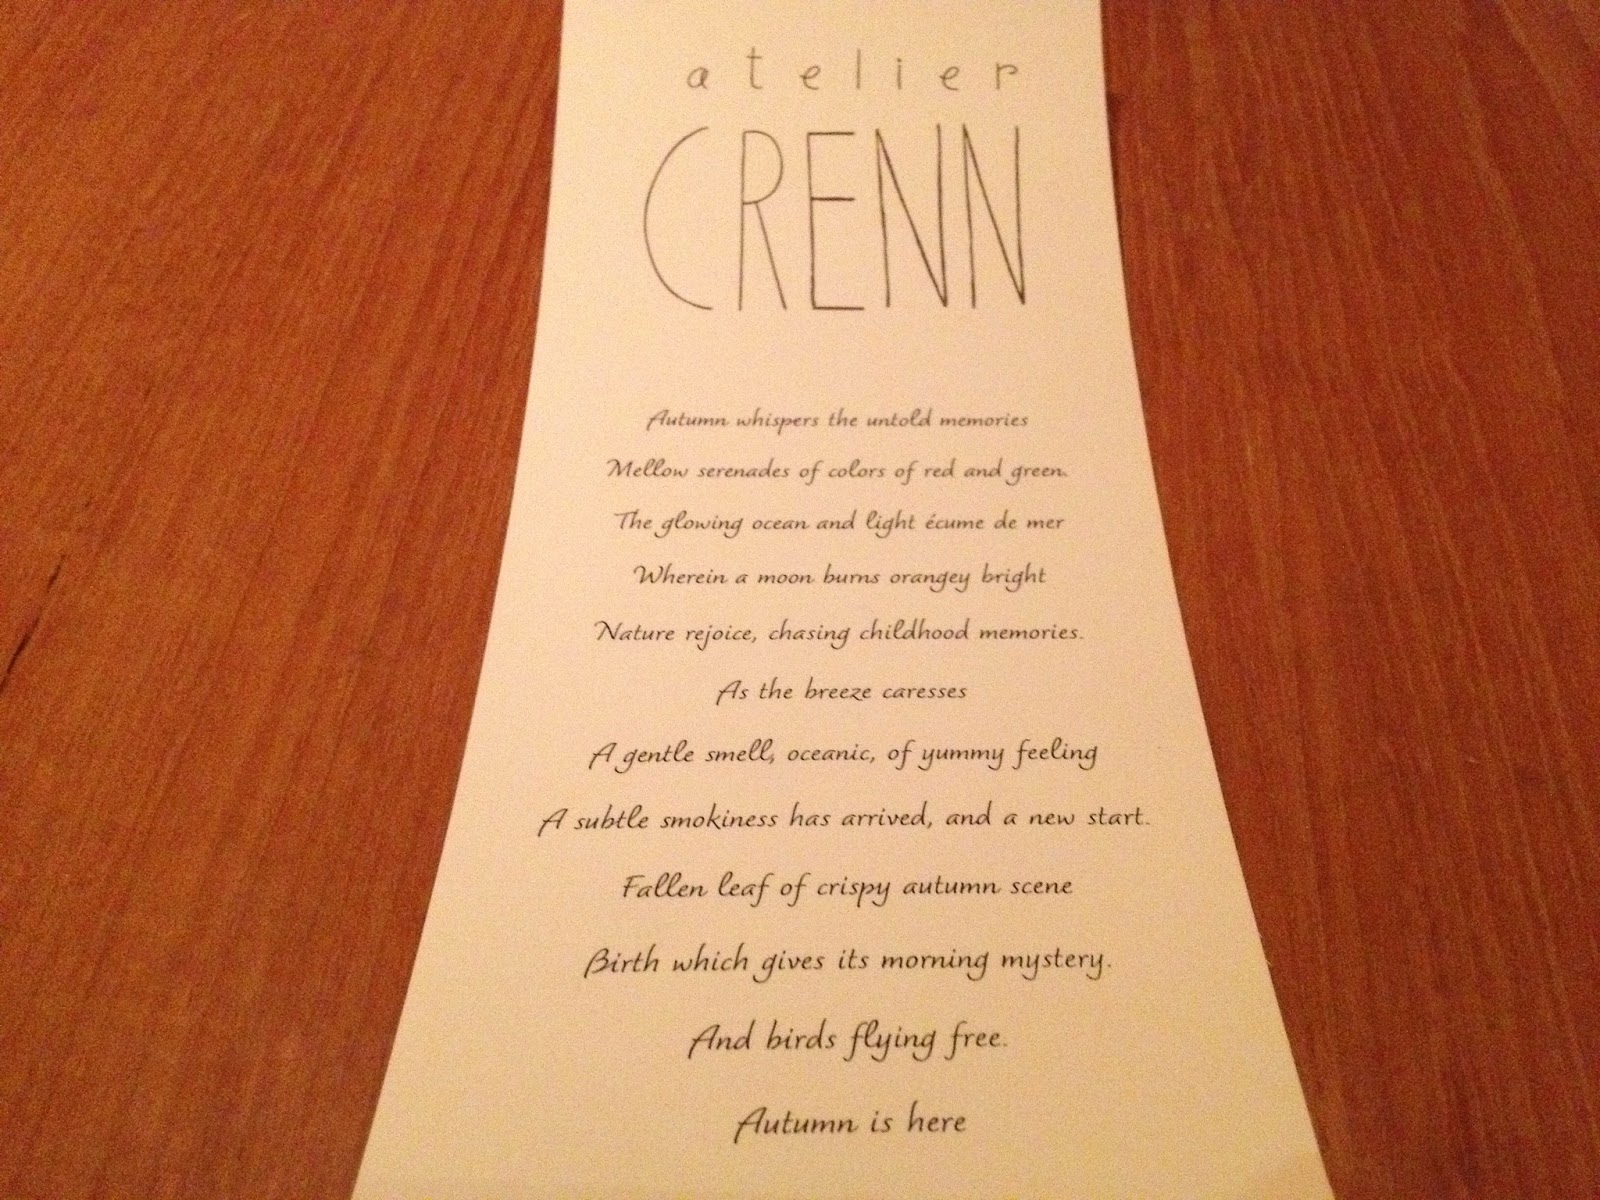 atelier
CRENN
Autumn whispers the untold memories
Mellow serenades of colors of red and green.
The glowing ocean and light écume de mer
Wherein a moon burns orangey bright
Nature rejoice, chasing childhood memories.
As the breeze caresses
A gentle smell, oceanic, of yummy feeling
A subtle smokiness has arrived, and a new start.
Fallen leaf of crispy autumn scene
Birth which gives its morning mystery.
And birds flying free.
Autumn is here